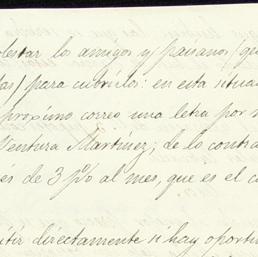 olestar los amigos y paisanos (qu
as) para cubrirlos: en esta situa
próximo correo una letra por
Ventura Martinez; de lo contra
es de 3 p% al mes, que es el c
itir directamente si hay oportu